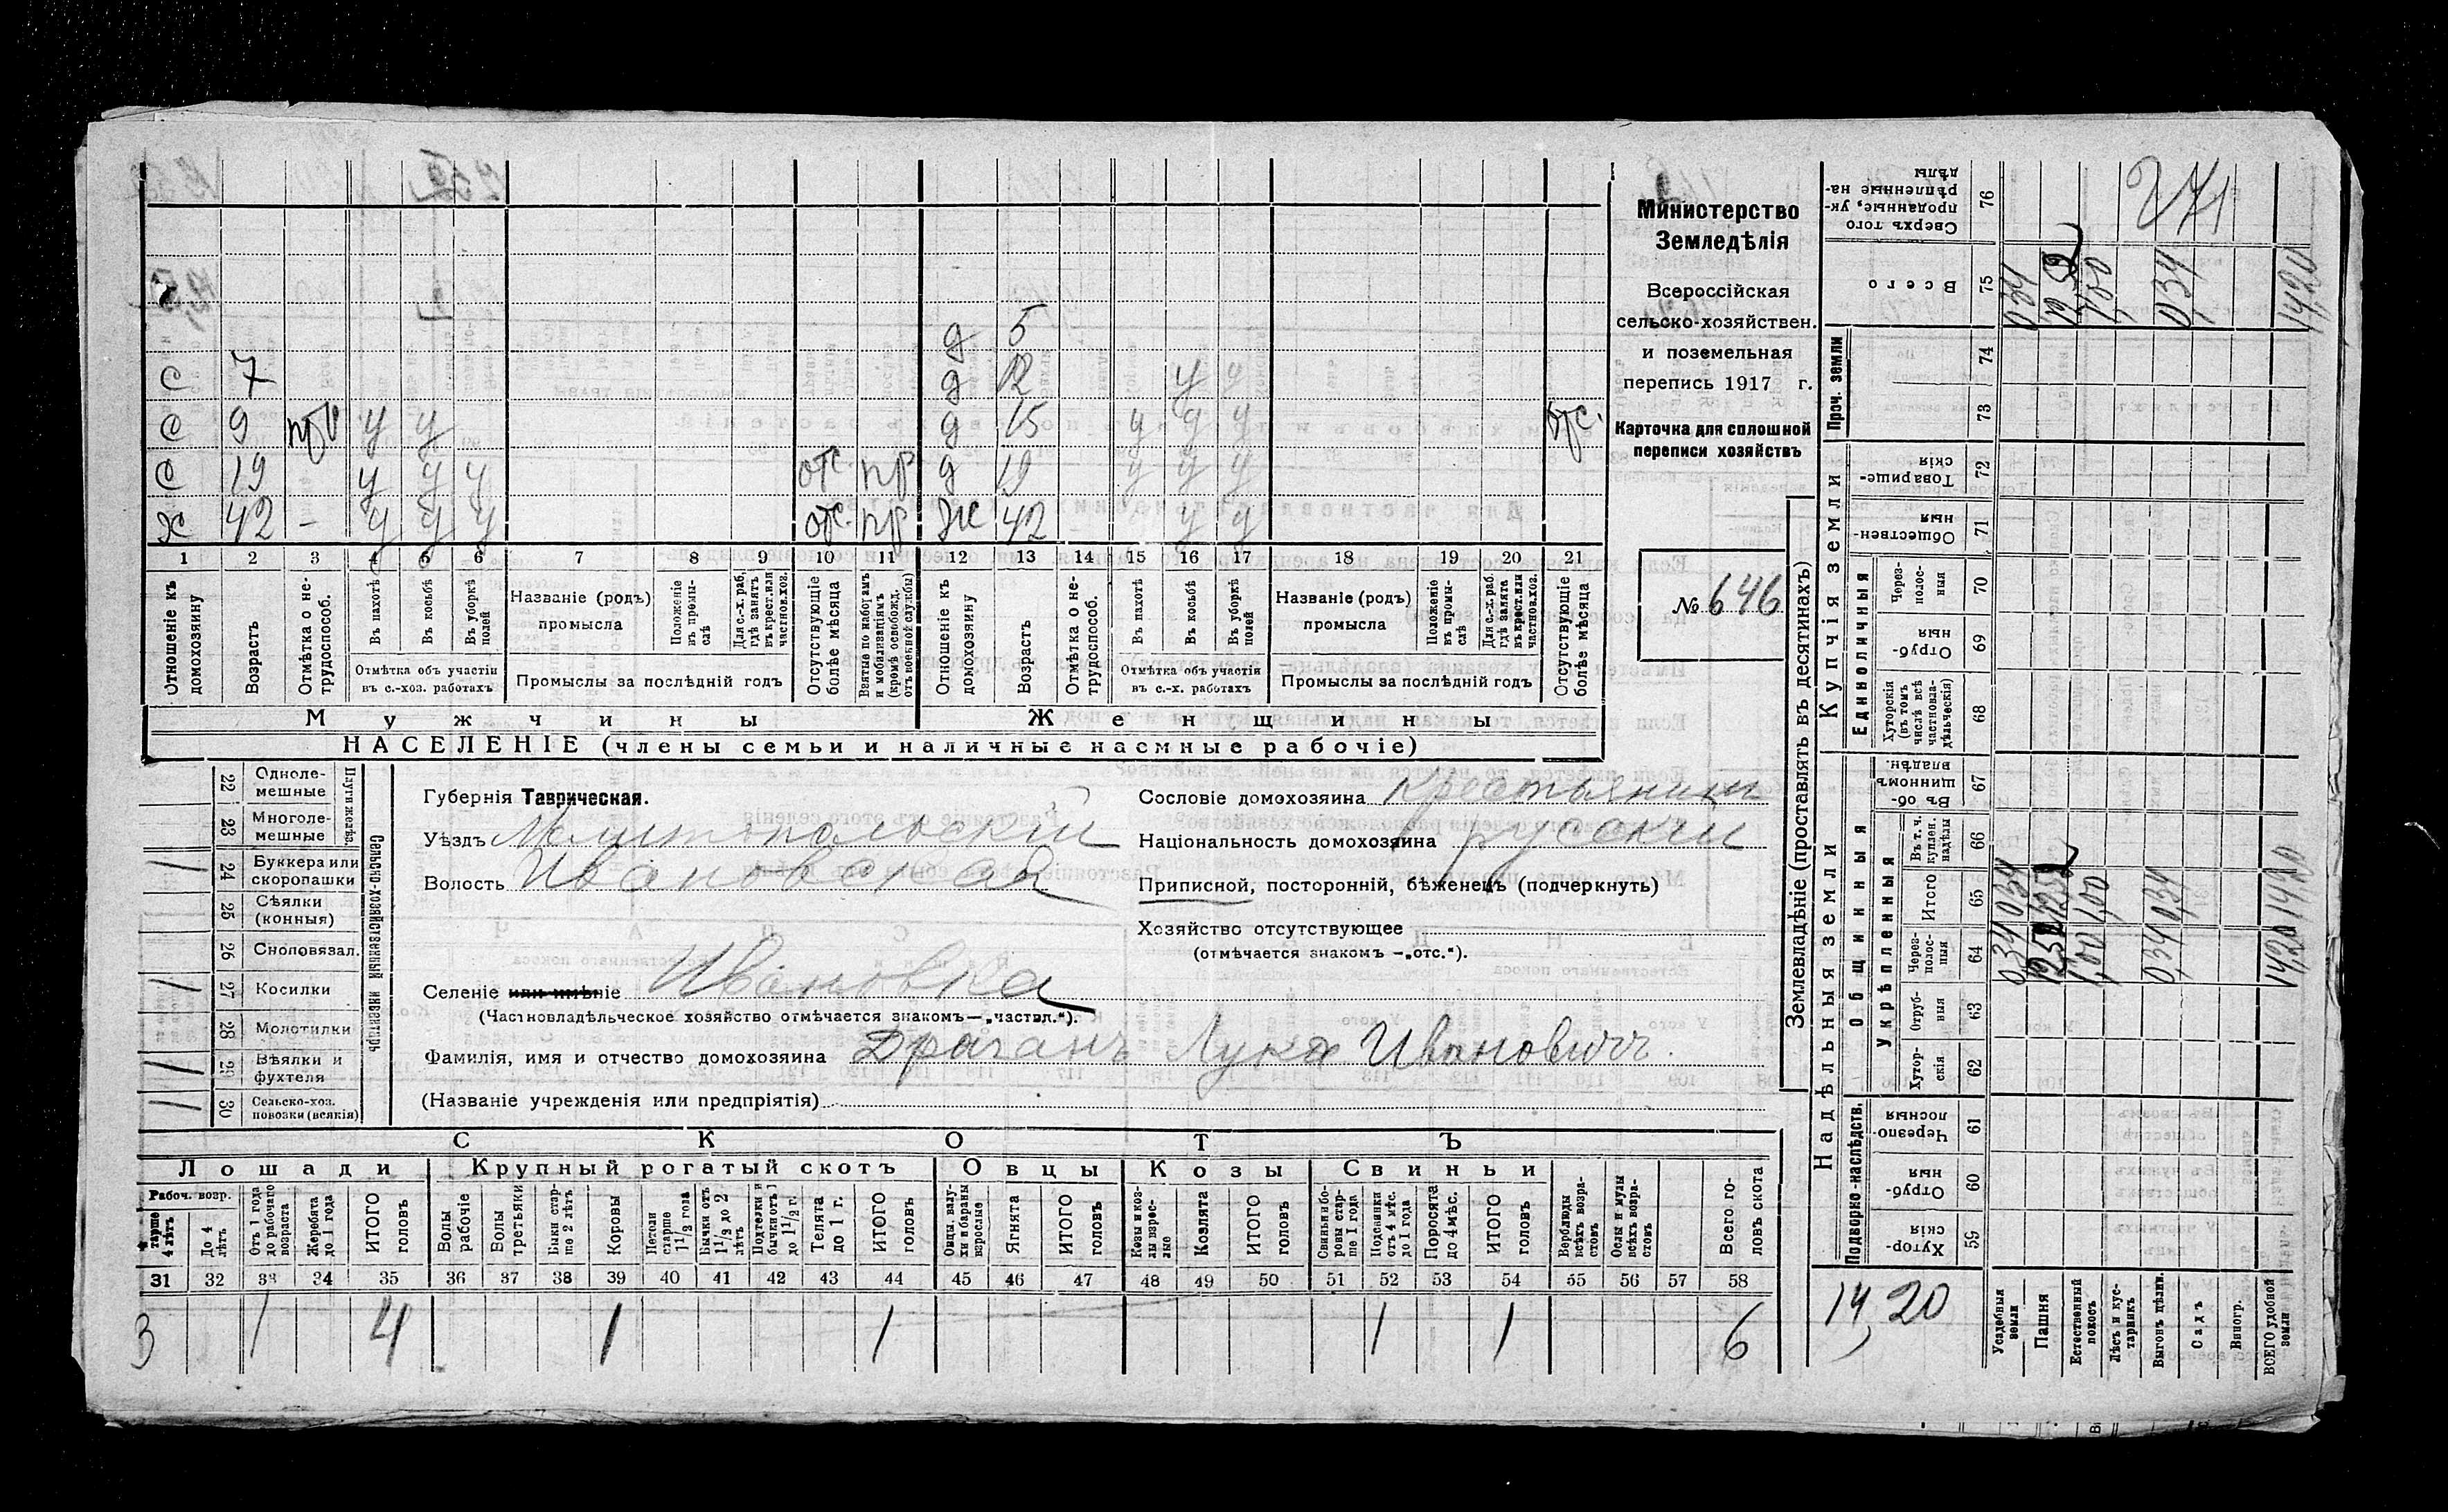 д 5
с 7 д 12 у у
с 9 у у д 15 у у у отс.
с 19 у у у отс. пр д 19 у у у
х 42 - у у у отс. пр ж 42 у у
1 2 3 4 5 6 7 8 9 10 11 12 13 14 15 16 17 18 19 20 21
Отношеніе къ домохозяину
Возрастъ
Отмѣтка о нетрудоспособ.
Въ пахотѣ
Въ косьбѣ
Въ уборкѣ полей
Отмѣтка объ участіи въ с.-хоз. работахъ
Названіе (родъ) промысла
Положеніе въ промыслѣ
Для с.-х. раб. гдѣ занятъ въ крест. или частнов. хоз.
Промыслы за послѣдній годъ
Отсутствующіе болѣе мѣсяца
Взятые по наборамъ и мобилизаціямъ (кромѣ освобожд. отъ военной службы)
Отношеніе къ домохозяину
Возрастъ
Отмѣтка о нетрудоспособ.
Въ пахотѣ
Въ косьбѣ
Въ уборкѣ полей
Отмѣтка объ участіи въ с.-х. работахъ
Названіе (родъ) промысла
Положеніе въ промыслѣ
Для с.-х. раб. гдѣ занята въ крест. или частнов. хоз.
Промыслы за послѣдній годъ
Отсутствующіе болѣе мѣсяца
Мужчины Женщины
НАСЕЛЕНІЕ (члены семьи и наличные наемные рабочіе)
Министерство
Земледѣлія
Всероссійская
сельско-хозяйствен.
и поземельная
перепись 1917 г.
Карточка для сплошной
переписи хозяйствъ
№ 646
Сельско-хозяйственный инвентарь
Плуги желѣз.
22 Однолемешные
23 Многолемешные
24 Буккера или скоропашки 1
25 Сѣялки (конныя)
26 Сноповязал.
27 Косилки 1
28 Молотилки
29 Вѣялки и фухтеля 1
30 Сельско-хоз. повозки (всякія) 1
Губернія Таврическая.
Уѣздъ Мелитопольскій
Волость Ивановская
Селеніе или имѣніе Ивановка
(Частновладѣльческое хозяйство отмѣчается знакомъ—„частвл.“).
Фамилія, имя и отчество домохозяина Драганъ Лука Ивановичъ.
(Названіе учрежденія или предпріятія)
Сословіе домохозяина крестьянинъ
Національность домохозяина русскій
Приписной, посторонній, бѣженецъ (подчеркнуть)
Хозяйство отсутствующее
(отмѣчается знакомъ —„отс.“).
СКОТЪ
Лошади Крупный рогатый скотъ Овцы Козы Свиньи
Рабоч. возр.
старше 4 лѣтъ
До 4 лѣтъ
Отъ 1 года до рабочаго возраста
Жеребята до 1 года
ИТОГО головъ
Волы рабочіе
Волы третьяки
Быки старше 2 лѣтъ
Коровы
Нетели старше 1½ года
Бычки отъ 1½ до 2 лѣтъ
Подтелки и бычки отъ 1 до 1½ г.
Телята до 1 г.
ИТОГО головъ
Овцы, валухи и бараны взрослые
Ягнята
ИТОГО головъ
Козы и козлы взрослые
Козлята
ИТОГО головъ
Свиньи и боровы старше 1 года
Подсвинки отъ 4 мѣс. до 1 года
Поросята до 4 мѣс.
ИТОГО головъ
Верблюды всѣхъ возрастовъ
Ослы и мулы всѣхъ возрастовъ
Всего головъ скота
31 32 33 34 35 36 37 38 39 40 41 42 43 44 45 46 47 48 49 50 51 52 53 54 55 56 57 58
3 1 4 1 1 1 1 6
Землевладѣніе (проставлять въ десятинахъ)
Надѣльныя земли
Купчія земли
Проч. земли
Подворно-наслѣдств.
Общинныя
Укрѣпленныя
Единоличныя
Сверхъ того проданные, укрѣпленные надѣлы 76 271
Всего 75 0,34 12,52 1,00 0,34 14,20
74
73
Товарищескія 72
Общественныя 71
Черезполосныя 70
Отрубныя 69
Хуторскія (въ томъ числѣ всѣ частновладѣльческія) 68
Въ общинномъ владѣн. 67
Въ т. ч. куплен. надѣлы 66
Итого 65 0,34 12,52 1,00 0,34 14,20
Черезполосныя 64 0,34 12,52 1,00 0,34 14,20
Отрубныя 63
Хуторскія 62
Черезполосныя 61
Отрубныя 60
Хуторскія 59
14,20
Усадебныя земли
Пашня
Естественный покосъ
Лѣсъ и кустарникъ
Выгонъ цѣлин.
Садъ
Виногр.
ВСЕГО удобной земли